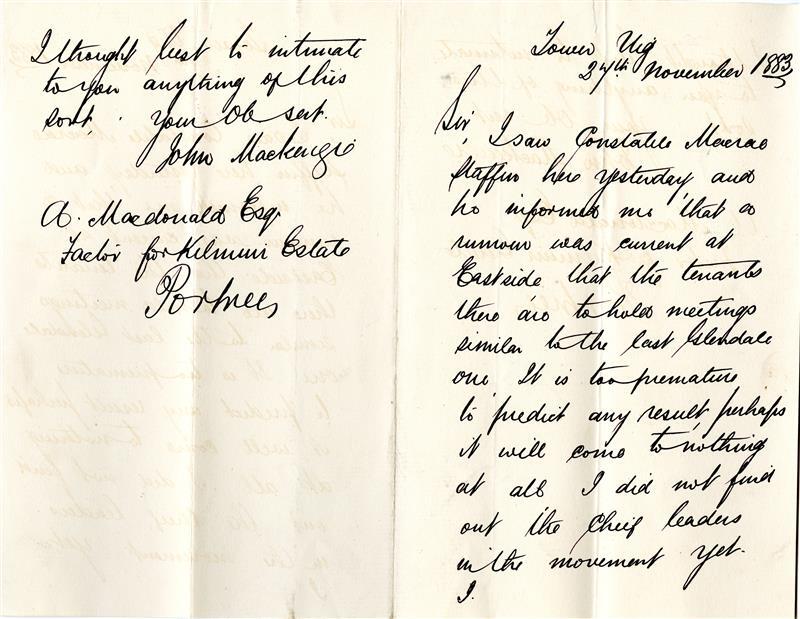 Tower Uig
27th November 1883
Sir, I saw Constable Macrae
Staffin here yesterday, and
he informed me that a
rumour was current at
Eastside that the tenants
there are to hold meetings
similar to the last Glendale
one. It is too premature
to predict any result, perhaps
it will come to nothing
at all I did not find
out the Cheif leaders
in the movement yet.
I.
I thought best to intimate
to you anything of this
sort. your Ob sert.
John Mackenzie
A. Macdonald Esqr
Factor for Kilmuir Estate
Portree